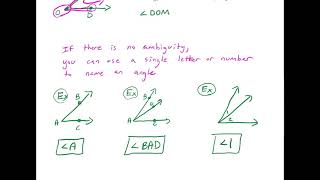 O D
∠DOM
If there is no ambiguity,
you can use a single letter or number
to name an angle.
Ex Ex Ex
B B
A C A
1
2
∠A ∠BAD ∠1